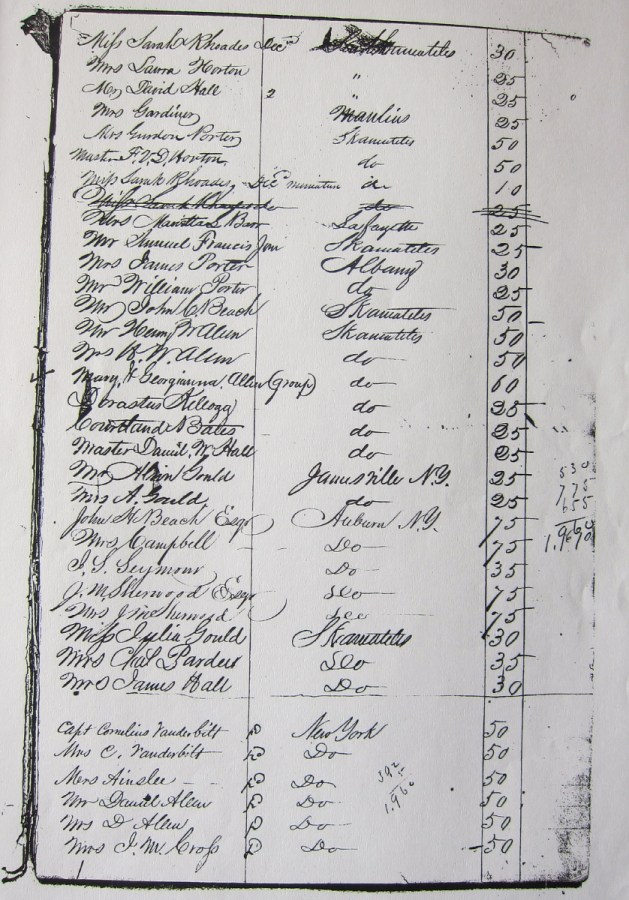 Miss Sarah Rhoades Decd Skaneateles 30
Mrs Laura Horton " 25
Mr David Hall 2 " 25
Mrs Gardiner Manlius 25
Mrs Gurdon Porter Skaneateles 50
Master F. V. D. Horton do 50
Miss Sarah Rhoades, Decd miniature do 10
Miss Sarah Rhoades do 25
Mrs Barr Lafayette 25
Mr Samuel Francis Jun Skaneateles 25
Mrs James Porter Albany 30
Mr William Porter do 25
Mr John C. Beach Skaneateles 50
Mr Henry W Allen Skaneateles 50
Mrs H. W. Allen do 50
Mary & Georgianna Allen (Group) do 60
Dorastus Kellogg do 25
Courtland Bates do 25
Master David W Hall do 25
Mr Alvin Gould Jamesville N.Y. 25
Mrs A. Gould do 25
John H Beach Esqr Auburn N.Y. 75
Mrs Campbell Do 75
J. S. Seymour Do 35
J. M Sherwood Esqr do 75
Mrs J M Sherwood do 75
Miss Julia Gould Skaneateles 30
Mrs Chas Pardee do 35
Mrs James Hall Do 30
530
775
655
1,960
1.960
Capt Cornelius Vanderbilt P New York 50
Mrs C. Vanderbilt P Do 50
Mrs Ainslee P Do 50
392
1.960
Mr Daniel Allen P Do 50
Mrs D Allen P Do 50
Mrs J. M Cross P Do 50